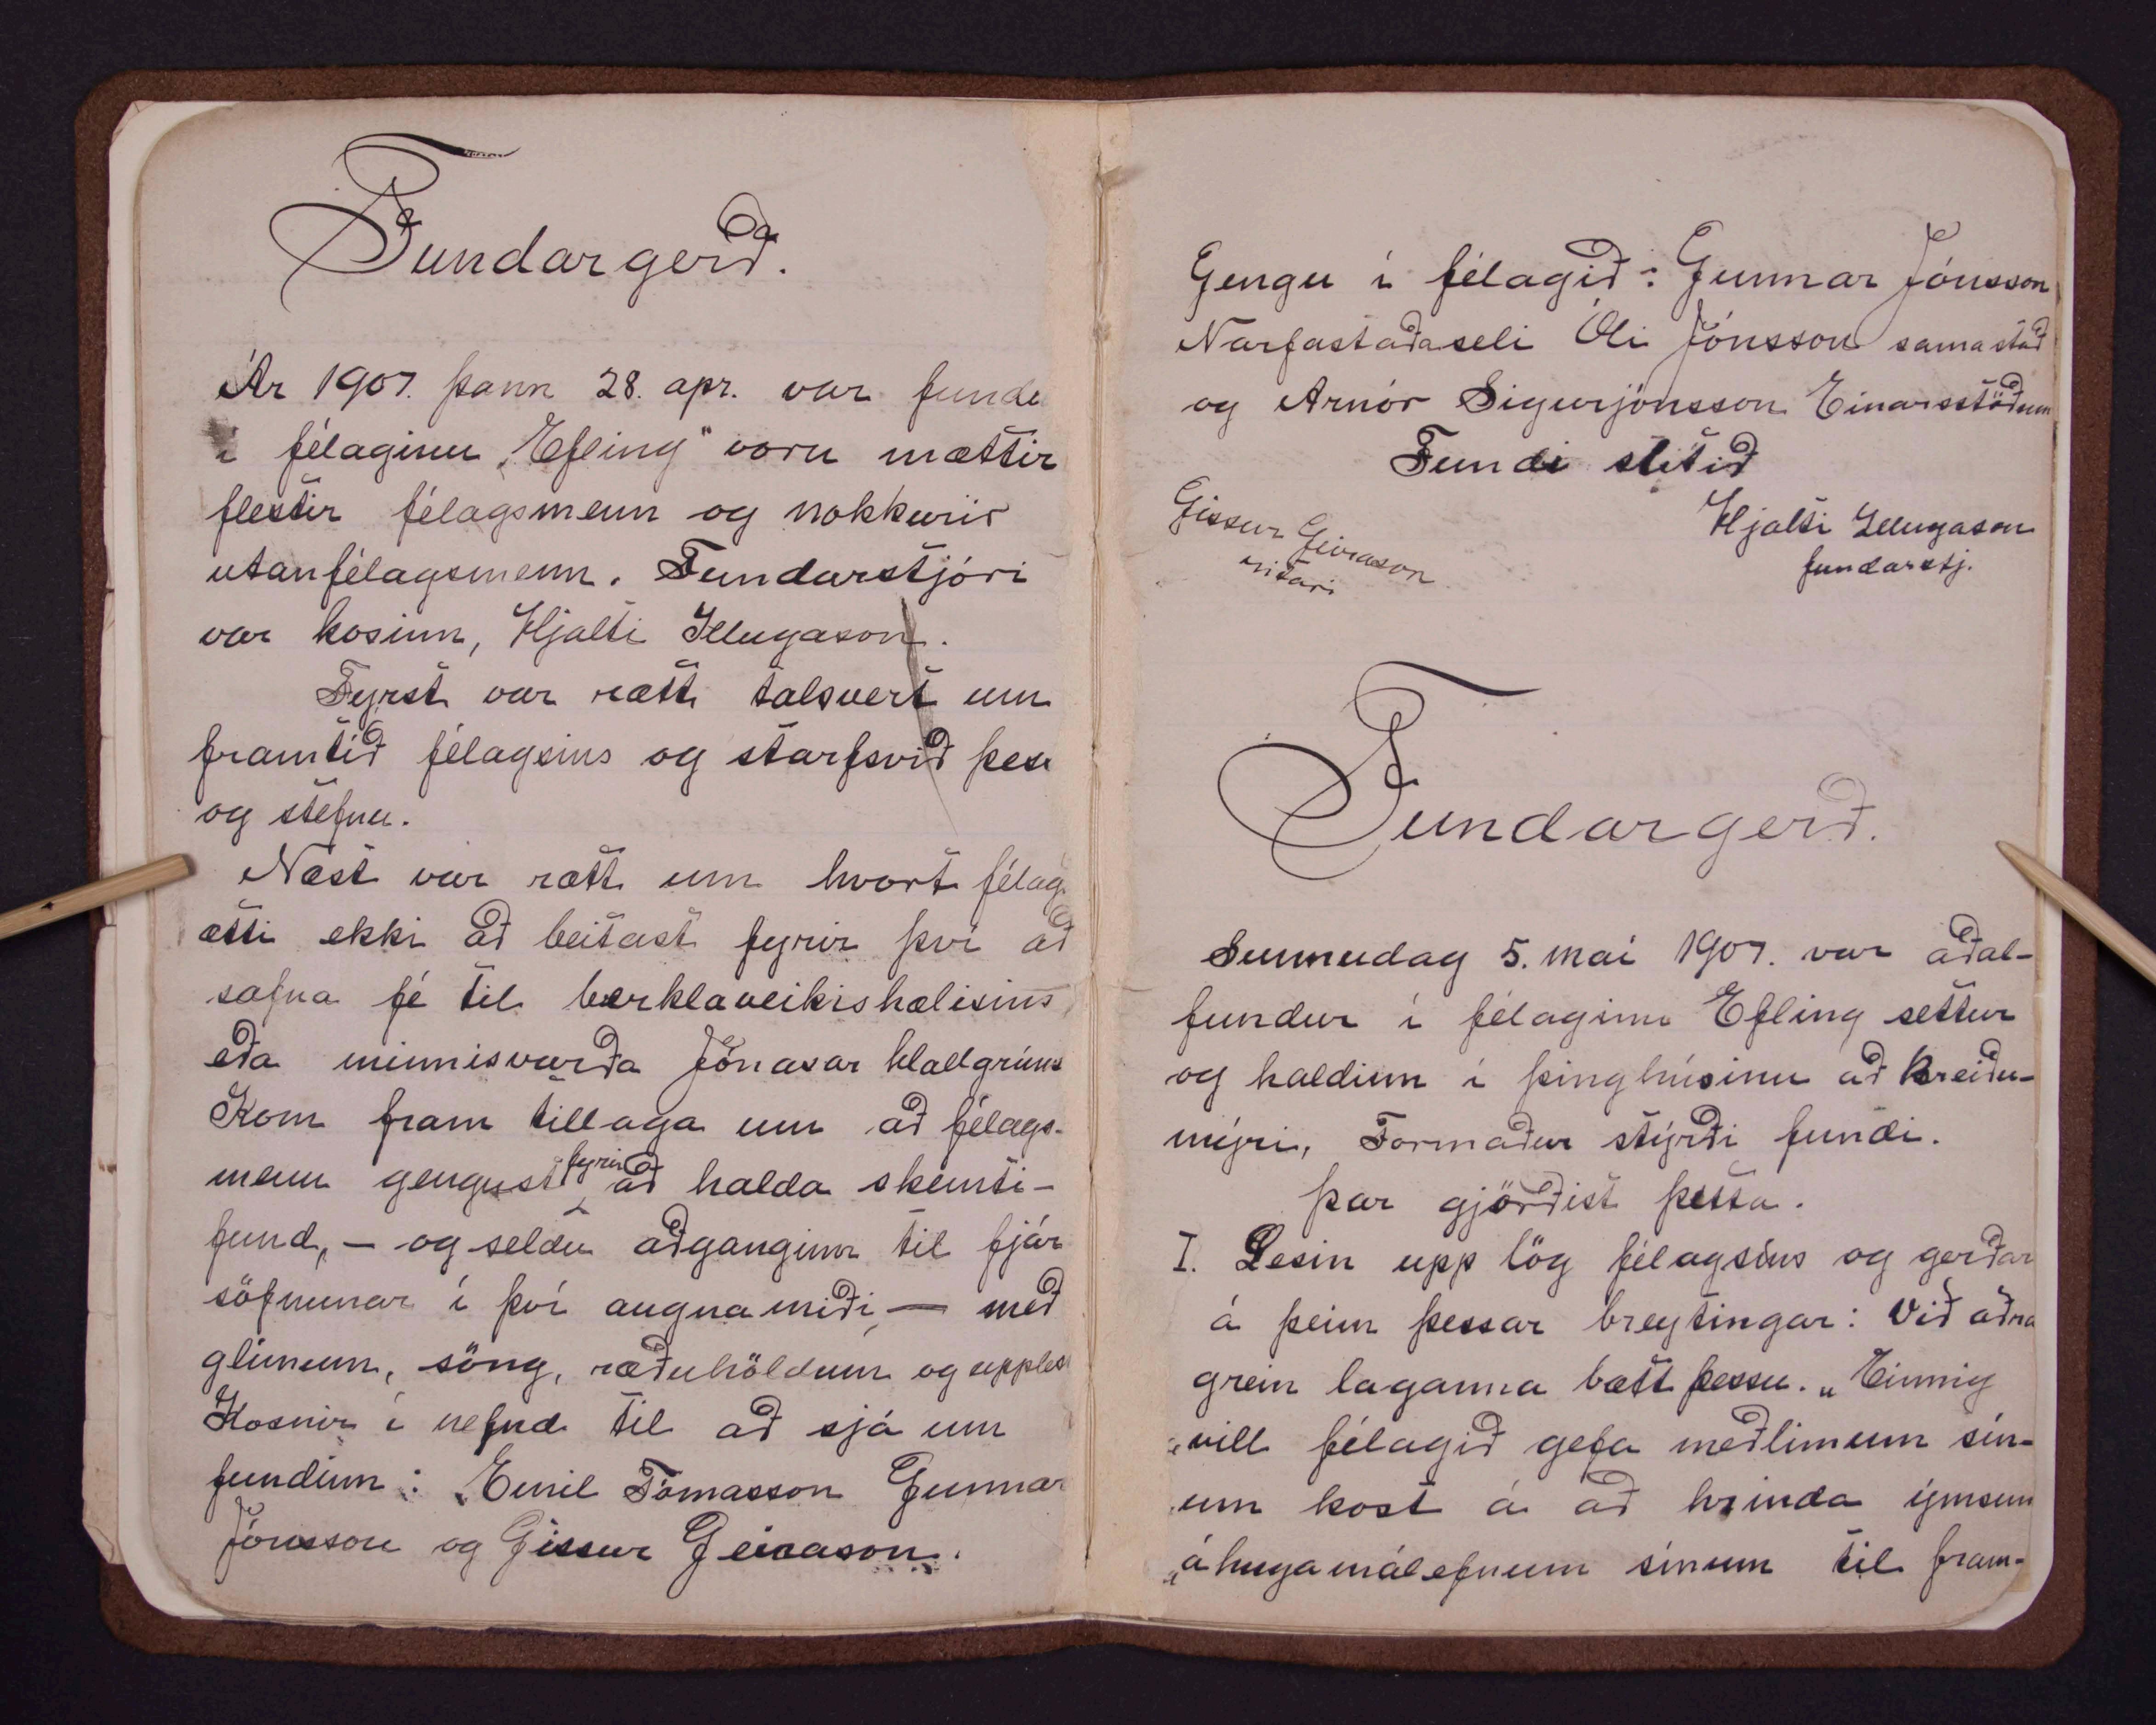 Fundargerð.
Ár 1907. þann 28. apr. var funde
í félaginu „Efling" voru mættir
flestir félagsmenn og nokkurir
utanfélagsmenn. Fundarstjóri
var kosinn, Hjalti Illugason.
Fyrst var rætt talsvert um
framtíð félagsins og starfsvið þess
og stefnu.
Næst var rætt um hvort félag
ætti ekki að beitast fyrir því að
safna fé til berklaveikishælisins
eða minnisvarða Jónasar Hallgríms
Kom fram tillaga um að félags-
menn gengust fyrir að halda skemti-
fund, – og seldu aðganginn til fjár
söfnunar í því augnamiði, – með
glímum, söng, ræðuhöldum og upples
Kosnir í nefnd til að sjá um
fundinn: Emil Tómasson Gunnar
Jónsson og Gissur Geirason.
Gengu í félagið: Gunnar Jónsson
Narfastaðaseli Óli Jónsson samastað
og Arnór Sigurjónsson Einarsstöðum
Fundi slitið
Hjalti Illugason
fundarstj.
Gissur Geirason
ritari
Fundargerð.
Sunnudag 5. maí 1907. var aðal-
fundur í félaginu Efling settur
og haldinn í þinghúsinu að Breiðu-
mýri, Formaður stýrði fundi.
Þar gjörðist þetta.
I. Lesin upp lög félagsins og gerðar
á þeim þessar breytingar: Við aðra
grein laganna bætt þessu. „Einnig
„vill félagið gefa meðlimum sín-
um kost á að hrinda ýmsum
„áhugamálefnum sínum til fram-